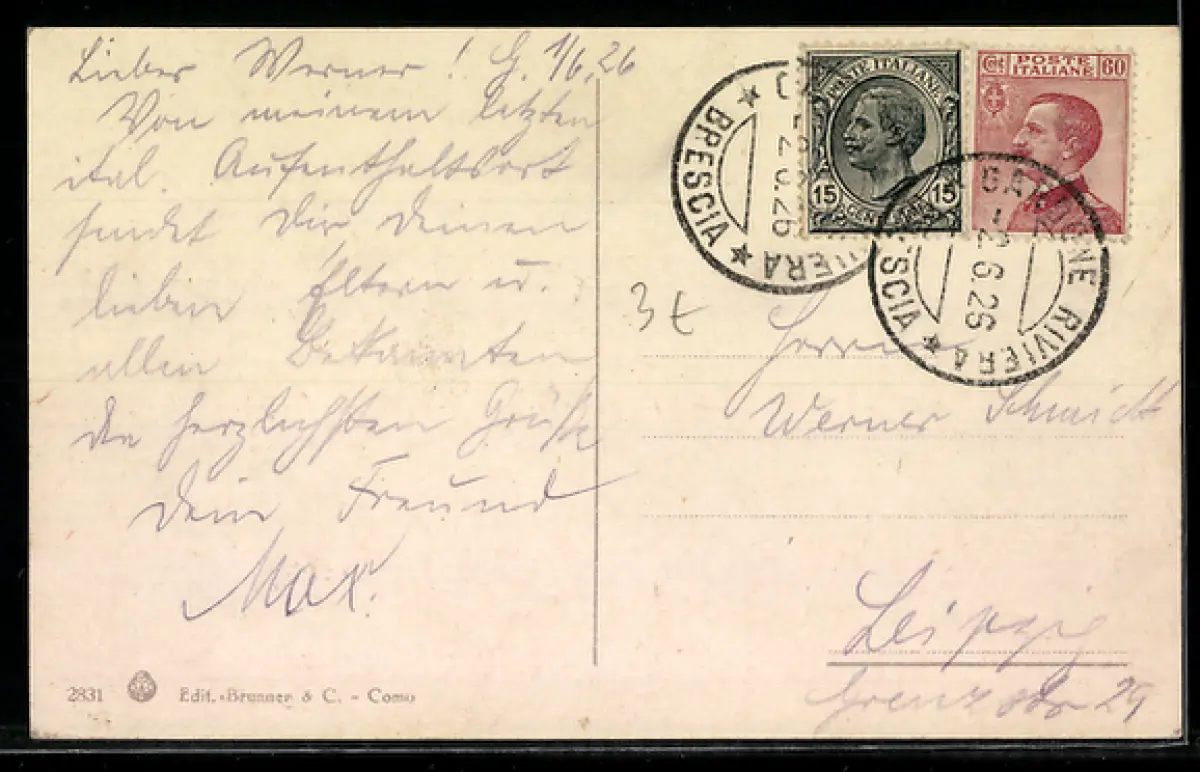 Lieber Werner! G. 1/6.26
Von meinem letzten
ital. Aufenthaltsort
sendet Dir Deinen
lieben Eltern u.
allen Bekannten
die herzlichsten Grüße
Dein Freund
Max.
2831 Edit. Brunner & C. - Como
POSTE ITALIANE
15 15
Cent 60
POSTE
ITALIANE
BRESCIA
RIVIERA
2.6.26
GARGNONE RIVIERA
-2.6.26
3t
Herrn
Werner Schmidt
Leipzig
Grenzstr 29